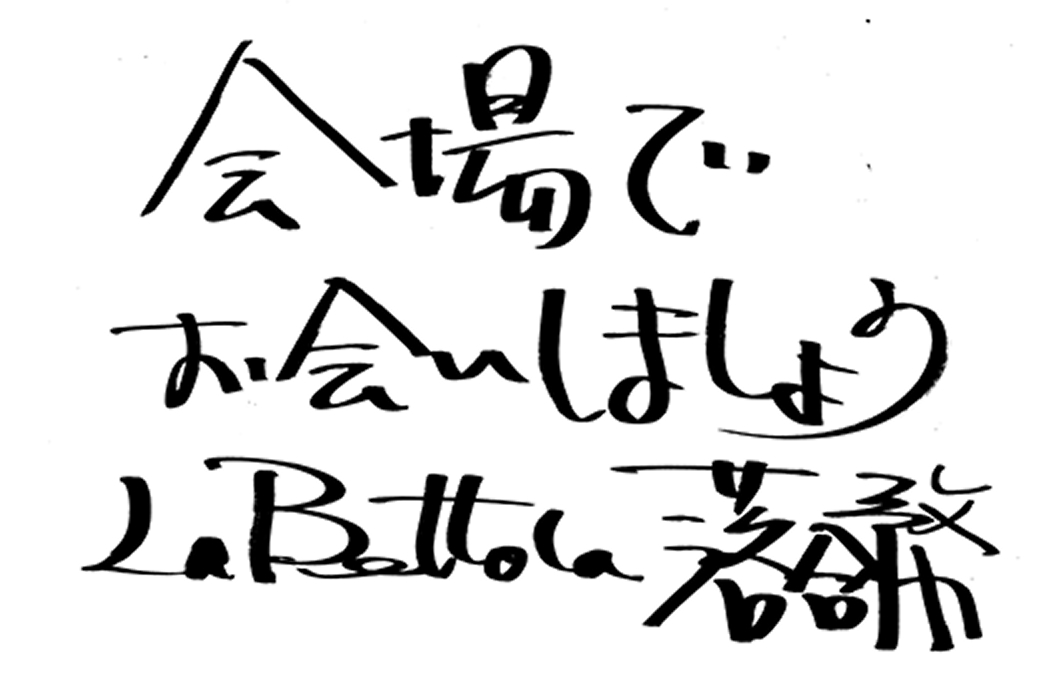 会場で
お会いしましょう
La Bettola 落合務